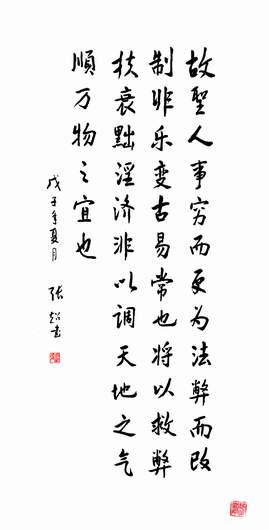 故聖人事穷而更为法弊而改
制非乐变古易常也将以救弊
扶衰黜淫济非以调天地之气
順万物之宜也
戊子年夏月 张